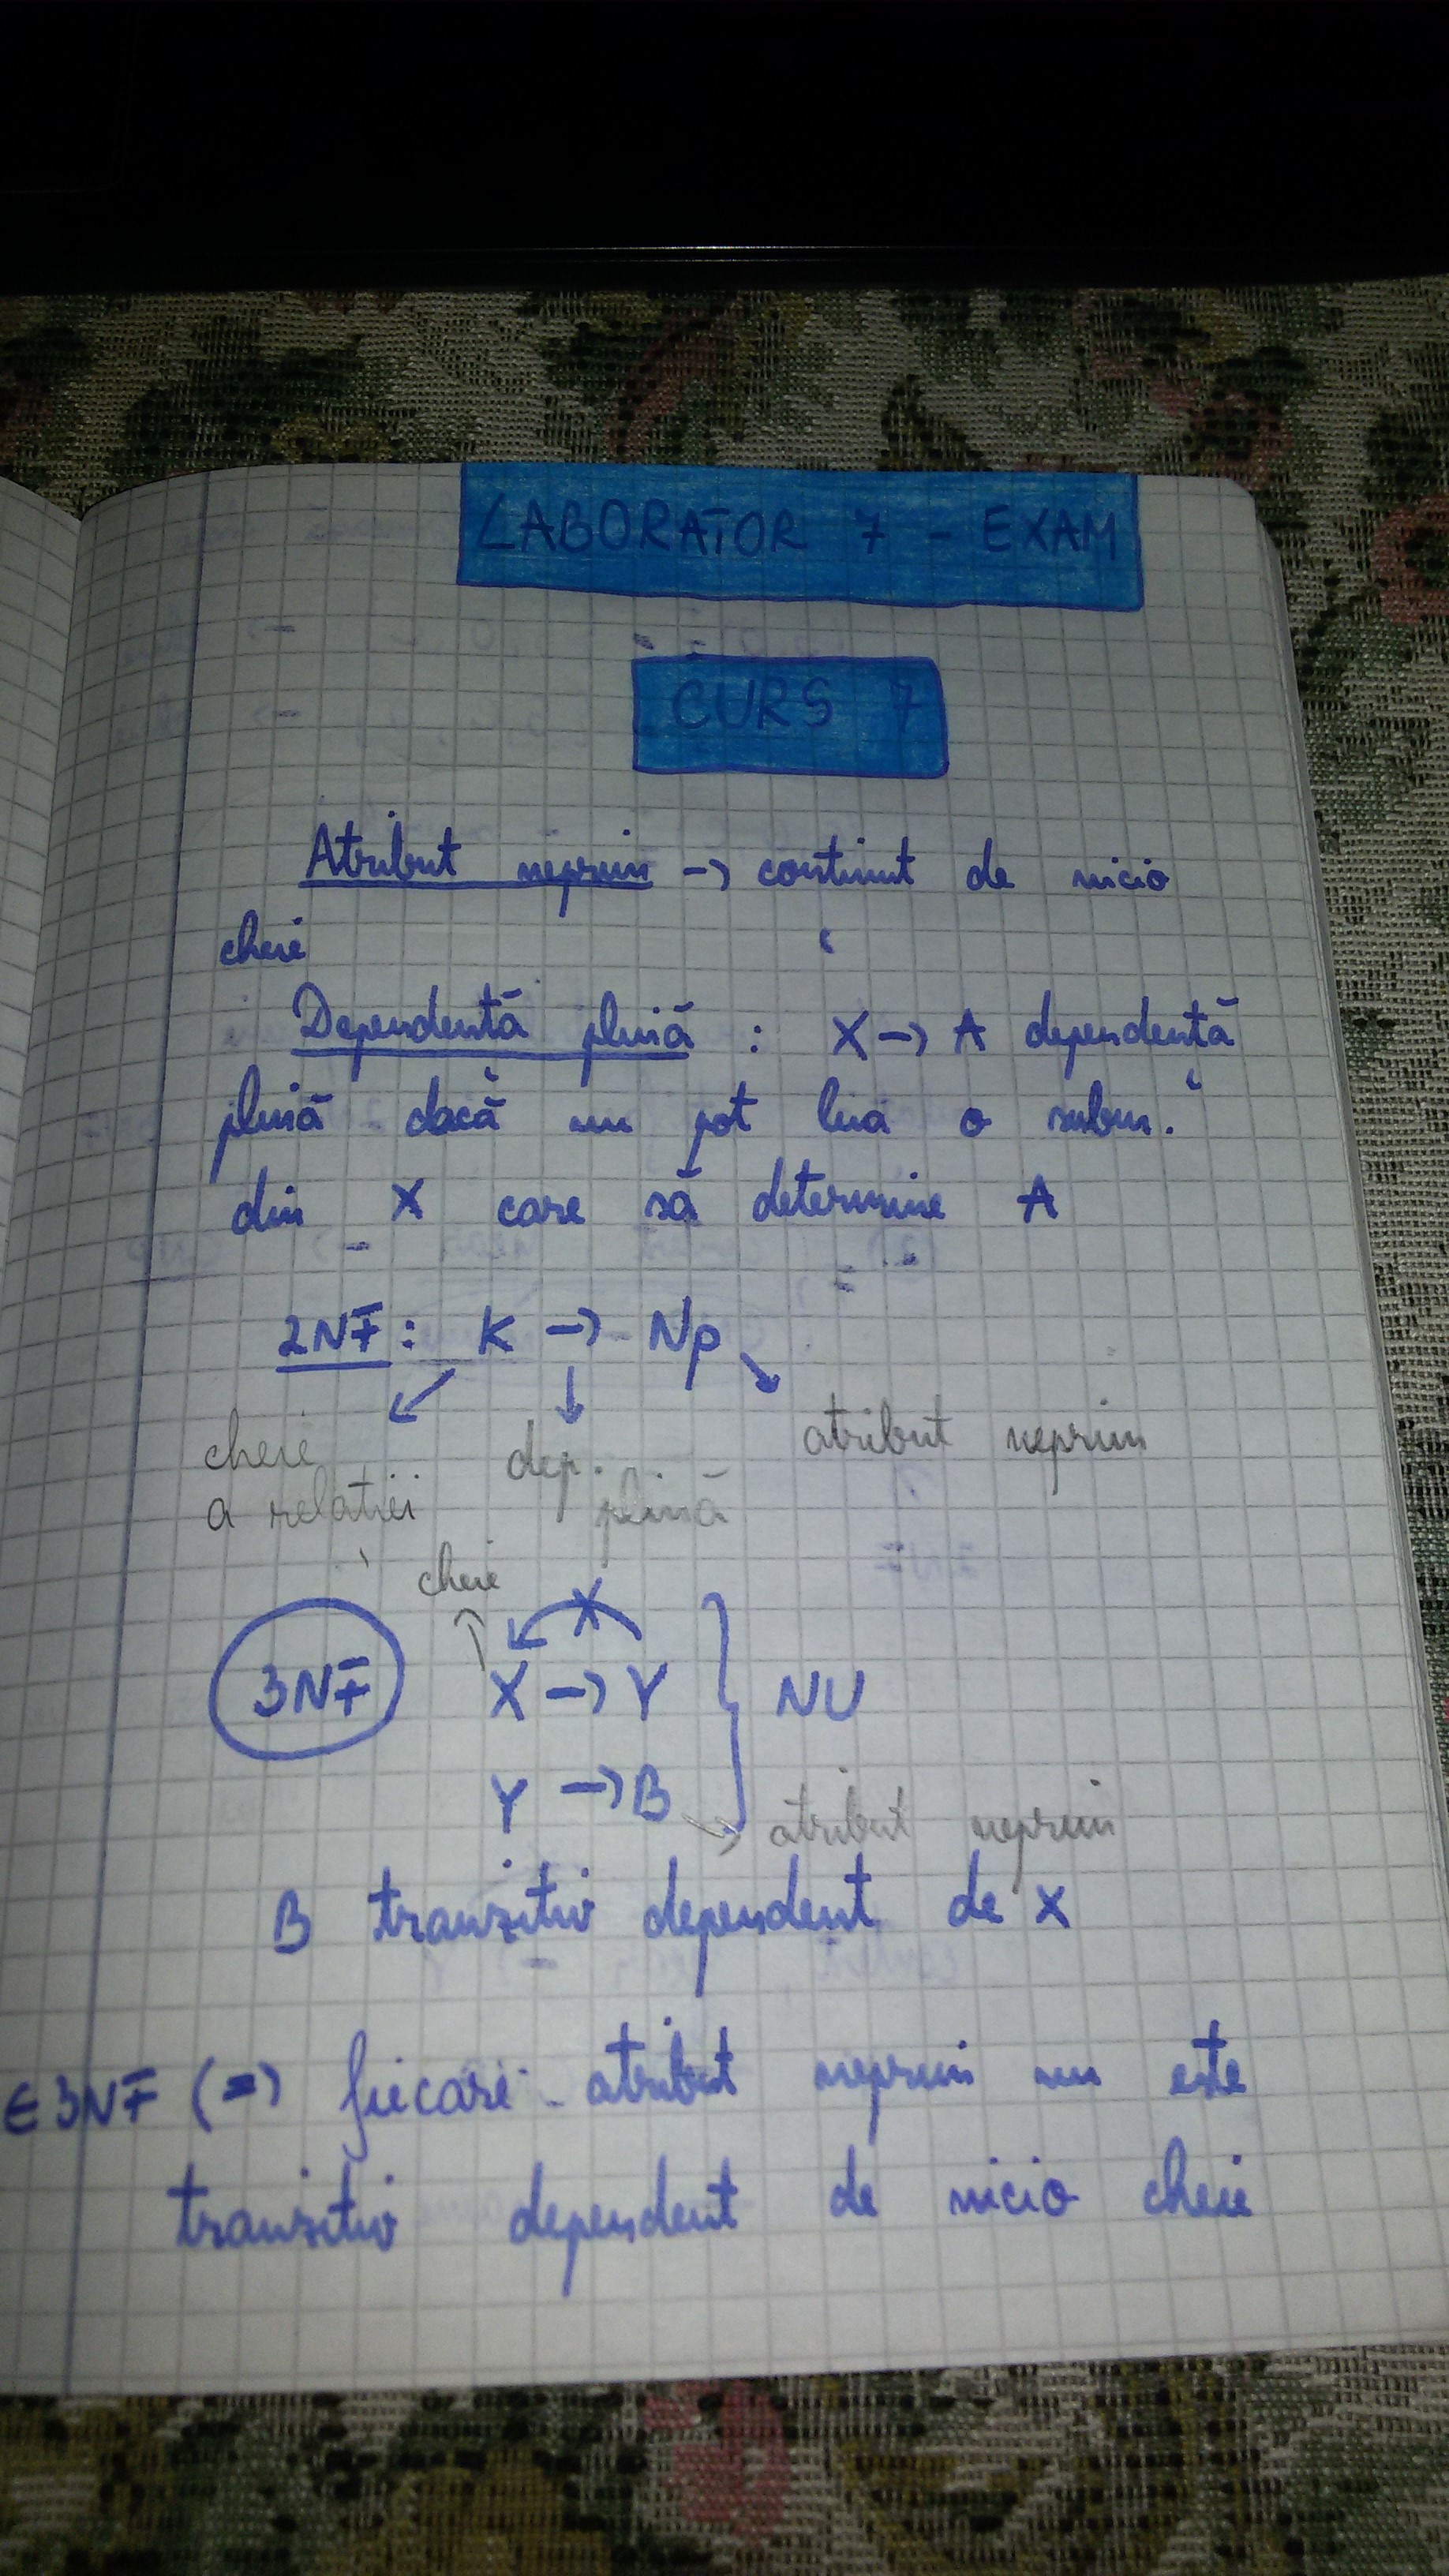 LABORATOR 7 - EXAM
CURS 7
Atribut neprim -> conținut de nicio
cheie
Dependență plină : X -> A dependență
plină dacă nu pot lua o subm.
din X care să determine A
2NF : K -> Np
cheie dep. atribut neprim
a relației plină
cheie
X
3NF X -> Y } NU
Y -> B -> atribut neprim
B tranzitiv dependent de X
∈ 3NF (=) fiecare atribut neprim nu este
tranzitiv dependent de nicio cheie